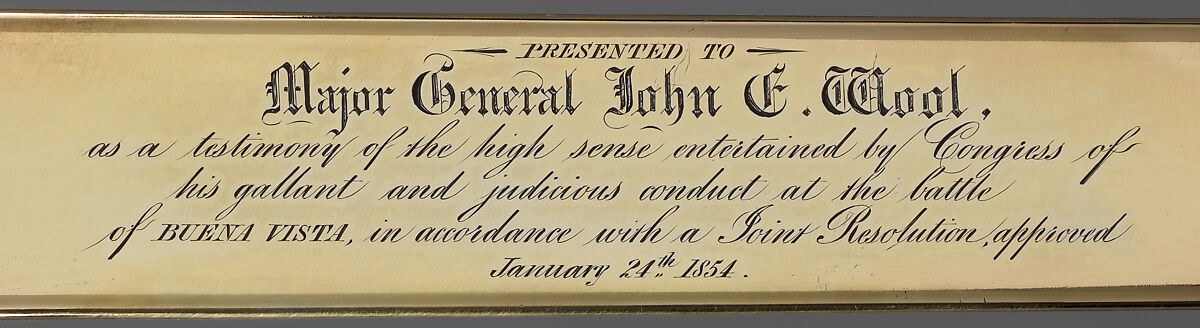 PRESENTED TO
Major General John E. Wool,
as a testimony of the high sense entertained by Congress of
his gallant and judicious conduct at the battle
of BUENA VISTA, in accordance with a Joint Resolution, approved
January 24th 1854.